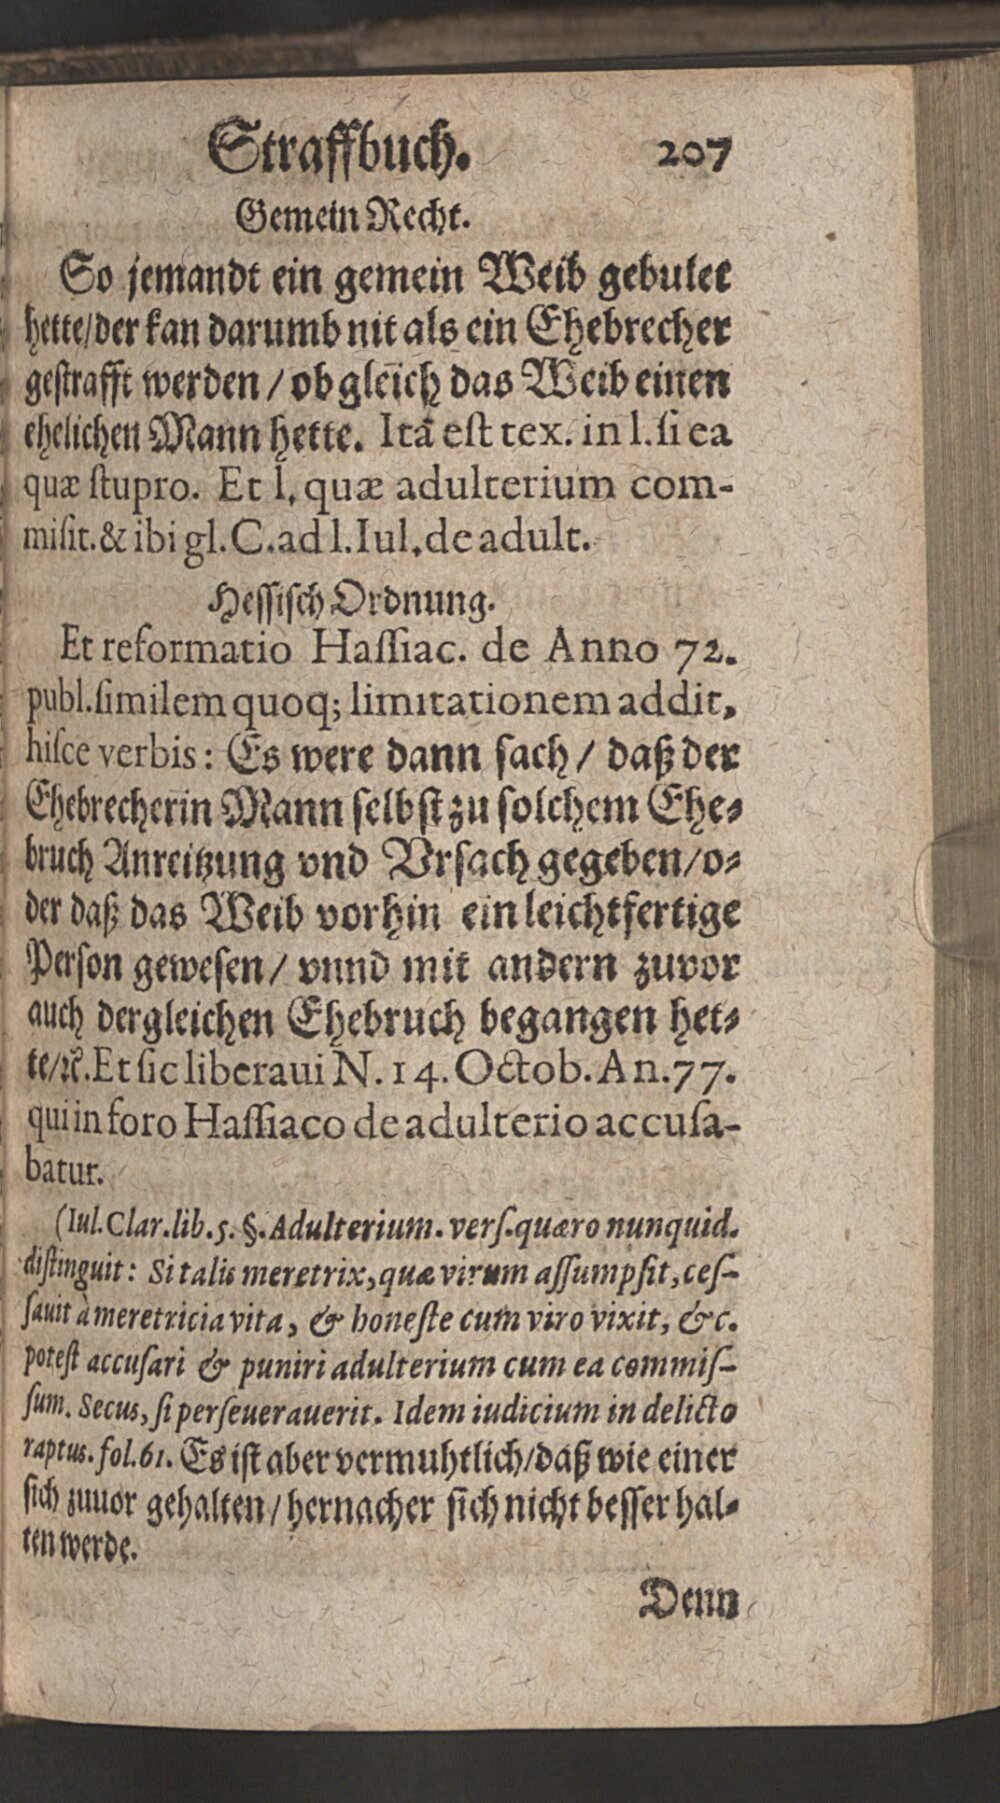 Straffbuch. 207
Gemein Recht.
So jemandt ein gemein Weib gebulet
hette/der kan darumb nit als ein Ehebrecher
gestrafft werden / ob gleich das Weib einen
ehelichen Mann hette. Itā est tex. in l. si ea
quæ stupro. Et l. quæ adulterium com-
misit. & ibi gl. C. ad l. Iul. de adult.
Hessisch Ordnung.
Et reformatio Hassiac. de Anno 72.
publ. similem quoq; limitationem addit,
hisce verbis: Es were dann sach / daß der
Ehebrecherin Mann selbst zu solchem Ehe-
bruch Anreitzung vnd Vrsach gegeben/o-
der daß das Weib vorhin ein leichtfertige
Person gewesen / vnnd mit andern zuvor
auch dergleichen Ehebruch begangen het-
te/ꝛc. Et sic liberaui N. 14. Octob. An. 77.
qui in foro Hassiaco de adulterio accusa-
batur.
(Iul. Clar. lib. 5. §. Adulterium. vers. quæro nunquid.
distinguit: Si talis meretrix, quæ virum assumpsit, ces-
sauit à meretricia vita, & honeste cum viro vixit, &c.
potest accusari & puniri adulterium cum ea commis-
sum. Secus, si perseuerauerit. Idem iudicium in delicto
raptus. fol. 61. Es ist aber vermuhtlich/daß wie einer
sich zuuor gehalten / hernacher sich nicht besser hal-
ten werde.
Denn